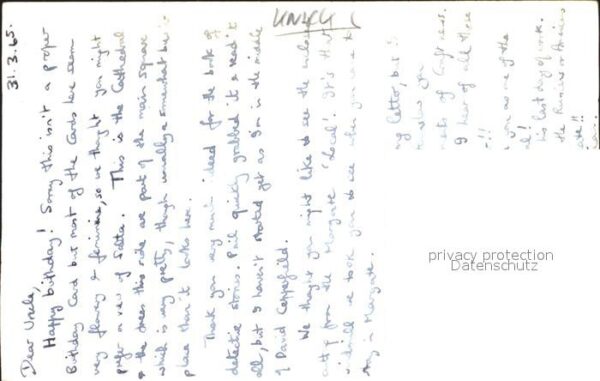 UNCLE
31.3.65.
Dear Uncle,
Happy birthday! Sorry this isn't a proper
Birthday Card but most of the Cards here seem
very flowery & feminine, so we thought you might
prefer a view of Salta. This is the Cathedral
& the trees this side are part of the main square
which is very pretty, though usually a somewhat
place than it looks here.
Thank you very much indeed for the book of
detective stories. Paul quickly grabbed it & read it
all, but I haven't started yet as I'm in the middle
of David Copperfield.
We thought you might like to see the
from the Margate 'Local'. It's that
windmill we took you to see when you came to
in Margate.
my letter, but
of
I hear of all these
!!
you as one of the
!
his last day of work.
the
!!
privacy protection
Datenschutz